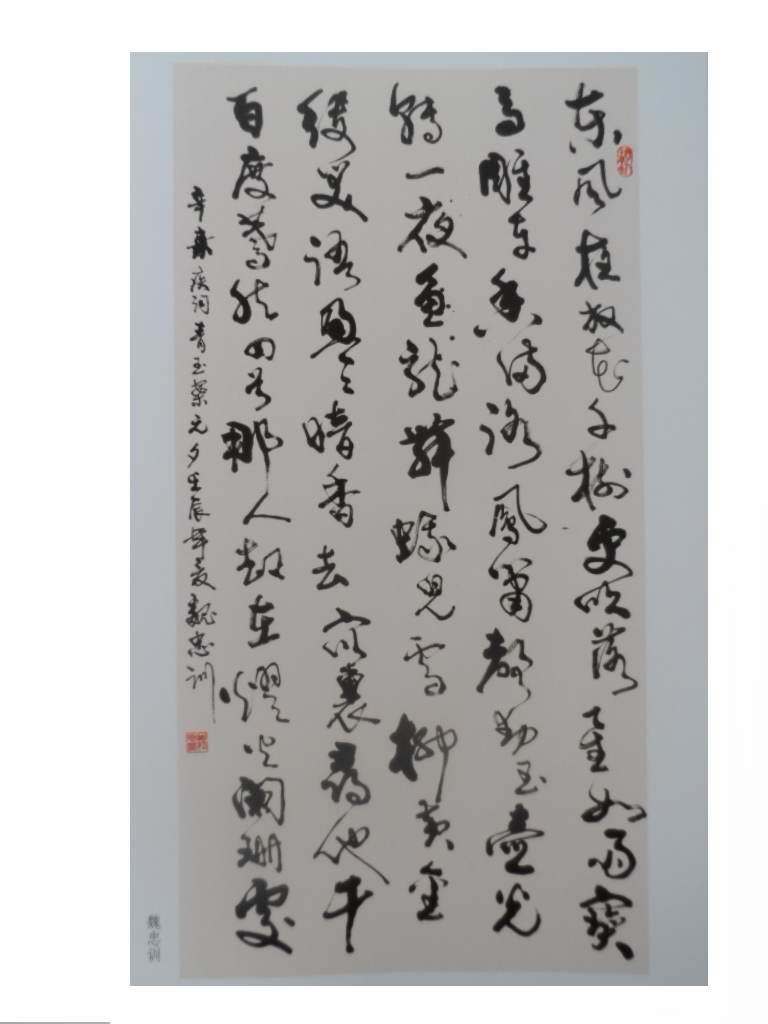 東風放花千樹更吹落星如雨寶
馬雕車香滿路鳳簫聲動玉壺光
轉一夜魚龍舞蛾兒雪柳黃金
縷笑語盈々暗香去衆裏尋他千
百度驀然回首那人却在燈火闌珊處
辛棄疾詞青玉案元夕壬辰年夏魏忠訓
魏忠训